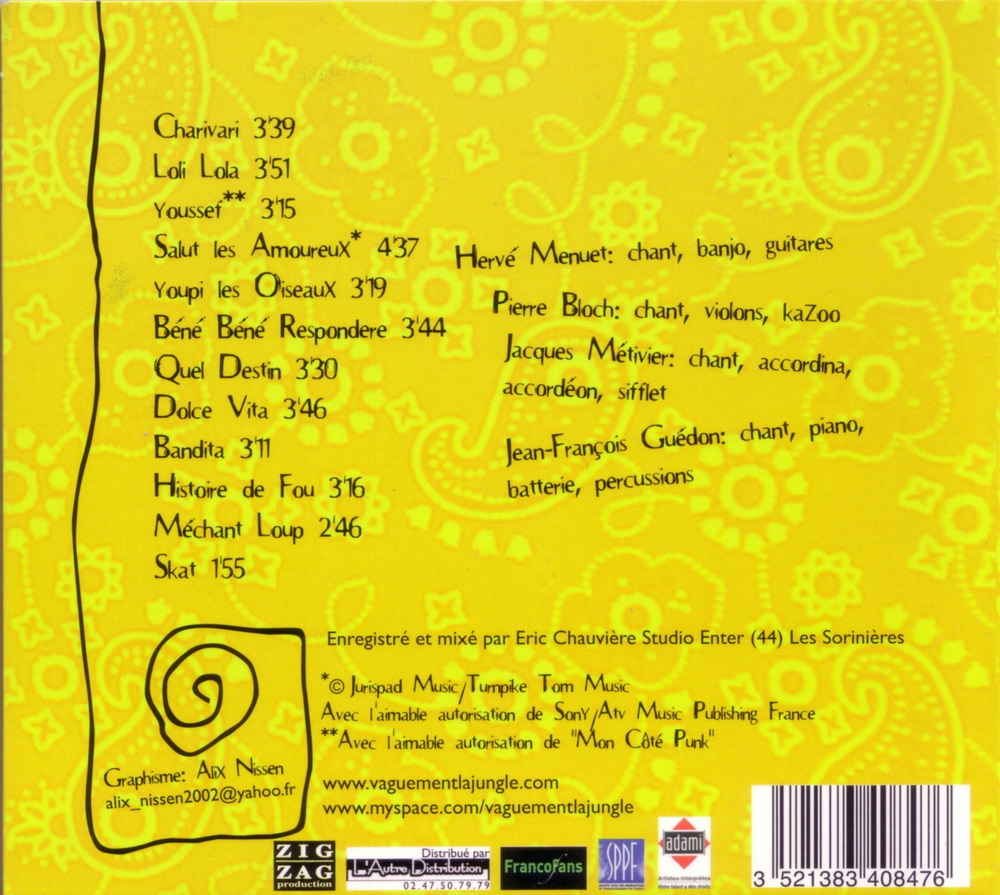 Charivari 3'39
Loli Lola 3'51
Youssef** 3'15
Salut les Amoureux* 4'37
Youpi les Oiseaux 3'19
Béné Béné Respondere 3'44
Quel Destin 3'30
Dolce Vita 3'46
Bandita 3'11
Histoire de Fou 3'16
Méchant Loup 2'46
Skat 1'55
Hervé Menuet: chant, banjo, guitares
Pierre Bloch: chant, violons, kaZoo
Jacques Métivier: chant, accordina,
accordéon, sifflet
Jean-François Guédon: chant, piano,
batterie, percussions
Enregistré et mixé par Eric Chauvière Studio Enter (44) Les Sorinières
*© Jurispad Music/Turnpike Tom Music
Avec l'aimable autorisation de Sony/Atv Music Publishing France
**Avec l'aimable autorisation de "Mon Côté Punk"
Graphisme: Alix Nissen
alix_nissen2002@yahoo.fr
www.vaguementlajungle.com
www.myspace.com/vaguementlajungle
ZIG
ZAG
production
Distribué par
L'Autre Distribution
02.47.50.79.79
FrancoFans
SPPF
adami
Artistes-Interprètes
Votre talent a des droits
3 521383 408476